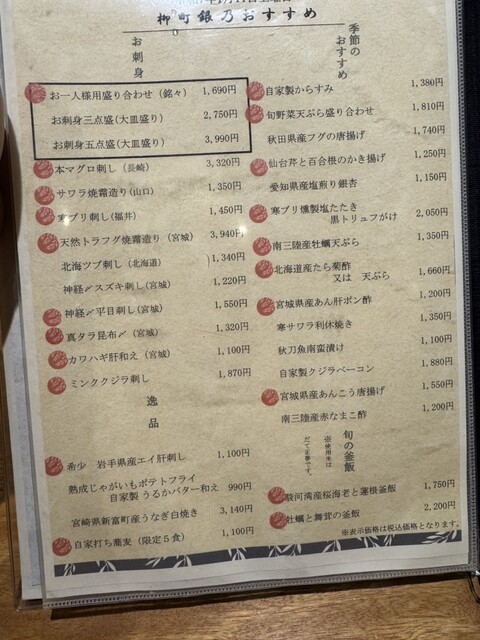 柳町銀乃おすすめ
お刺身
お一人様用盛り合わせ（銘々） 1,690円
お刺身三点盛(大皿盛り) 2,750円
お刺身五点盛(大皿盛り) 3,990円
本マグロ刺し（長崎） 3,320円
サワラ焼霜造り(山口) 1,350円
寒ブリ刺し(福井) 1,450円
天然トラフグ焼霜造り（宮城） 3,940円
北海ツブ刺し（北海道） 1,340円
神経〆スズキ刺し(宮城) 1,220円
神経〆平目刺し(宮城) 1,550円
真タラ昆布〆（宮城） 1,320円
カワハギ肝和え（宮城） 1,100円
ミンククジラ刺し 1,870円
逸品
希少 岩手県産エイ肝刺し 1,100円
熟成じゃがいもポテトフライ
自家製 うるかバター和え 990円
宮崎県新富町産うなぎ白焼き 3,140円
自家打ち蕎麦（限定５食） 1,100円
季節のおすすめ
自家製からすみ 1,380円
旬野菜天ぷら盛り合わせ 1,810円
秋田県産フグの唐揚げ 1,740円
仙台芹と百合根のかき揚げ 1,250円
愛知県産塩煎り銀杏 1,150円
寒ブリ燻製塩たたき
黒トリュフがけ 2,050円
南三陸産牡蠣天ぷら 1,350円
北海道産たら菊酢
又は 天ぷら 1,660円
宮城県産あん肝ポン酢 1,200円
寒サワラ利休焼き 1,350円
秋刀魚南蛮漬け 1,100円
自家製クジラベーコン 1,880円
宮城県産あんこう唐揚げ 1,550円
南三陸産赤なまこ酢 1,200円
旬の釜飯
駿河湾産桜海老と蓮根釜飯 1,750円
牡蠣と舞茸の釜飯 2,200円
※表示価格は税込価格となります。